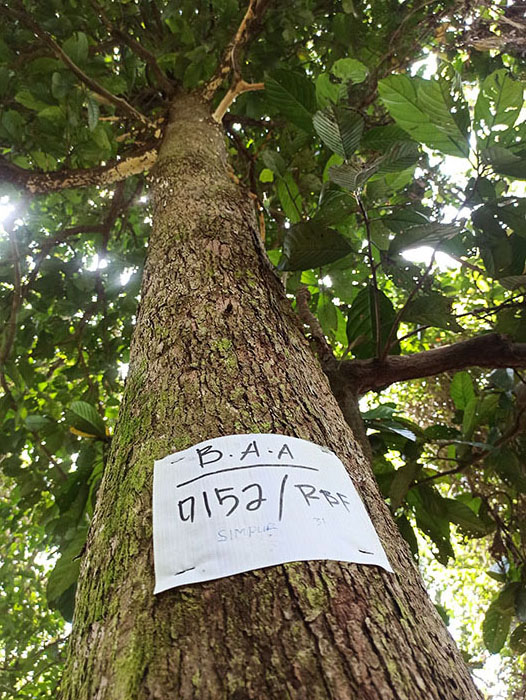 B.A.A
7152/RBF
SIMPUR 31